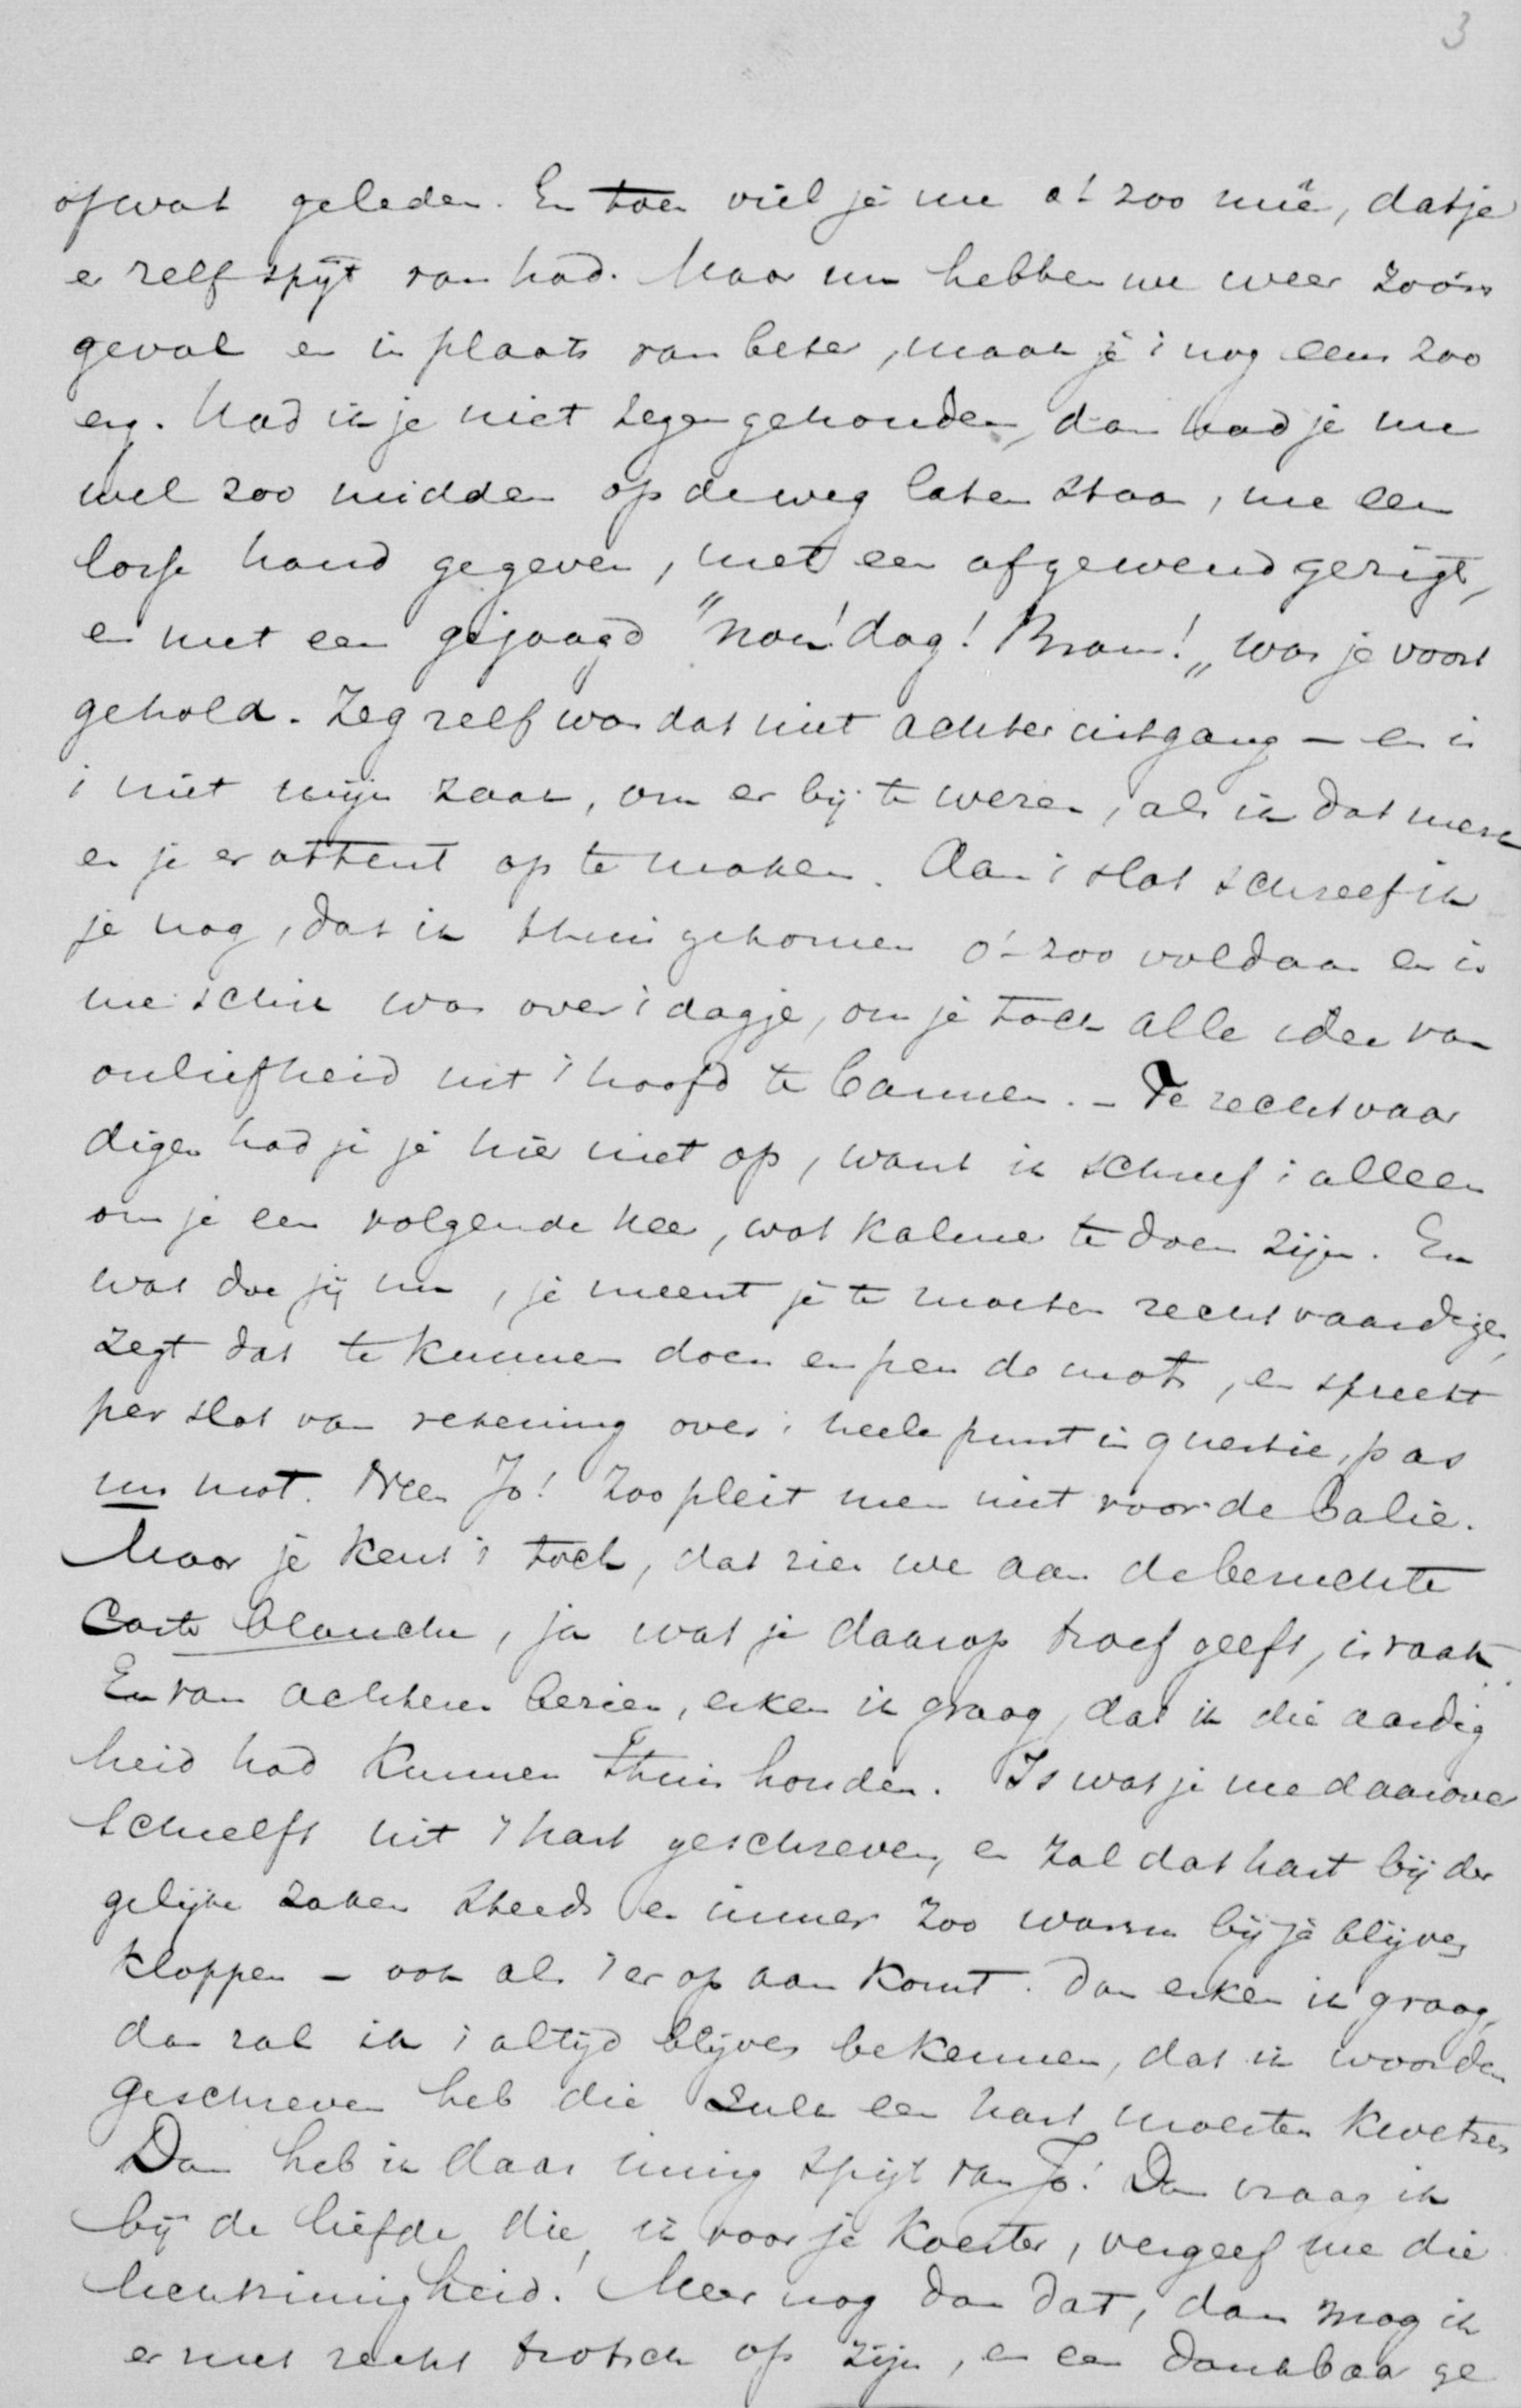 3
of wat geleden. En toen viel je me ook zoo mee, dat je
er zelf spijt van had. Maar nu hebben we weer zoo'n
geval en in plaats van beter, maak je 't nog eens zoo
erg. Had ik je niet tegengehouden, dan had je me
wel zoo midden op de weg laten staan, me een
losse hand gegeven, met een afgewend gezigt,
en met een gejaagd "nou! dag! Bram!" was je voort
gehold. Zeg zelf was dat niet achteruitgang – en is
't niet mijn zaak, om er bij te wezen, als ik dat merk
en je er attent op te maken. Aan 't slot schreef ik
je nog, dat ik thuis gekomen o-zoo voldaan en in
me schik was over 't dagje, om je toch alle idee van
onliefheid uit 't hoofd te bannen. – Te rechtvaar
digen had je je hier niet op, want ik schreef 't alleen
om je een volgende keer, wat kalmer te doen zijn. En
wat doe jij nu, je meent je te moeten rechtvaardigen,
zegt dat te kunnen doen en peu de mots, en spreekt
per slot van rekening over 't heele punt in questie, pas
un mot. Neen Jo! Zoo pleit men niet voor de balie.
Maar je kent 't toch, dat zien we aan de beruchte
Carte blanche, ja wat je daarop troef geeft, is raak..
En van achteren bezien, erken ik graag, dat ik die aardig
heid had kunnen thuis houden. Is wat je me daarover
schreeft uit 't hart geschreven, en zal dat hart bij der
gelijke zaken steeds en immer zoo warm bij je blijven
kloppen – ook als 't er op aan komt. Dan erken ik graag,
dan zal ik 't altijd blijven bekennen, dat ik woorden
geschreven heb die zulk een hart moesten kwetsen
Dan heb ik daar innig spijt van Jo! Dan vraag ik
bij de liefde die ik voor je koester, vergeef me die
lichtzinnigheid! Meer nog dan dat, dan mag ik
er met recht trotsch op zijn, en een dankbaar ge